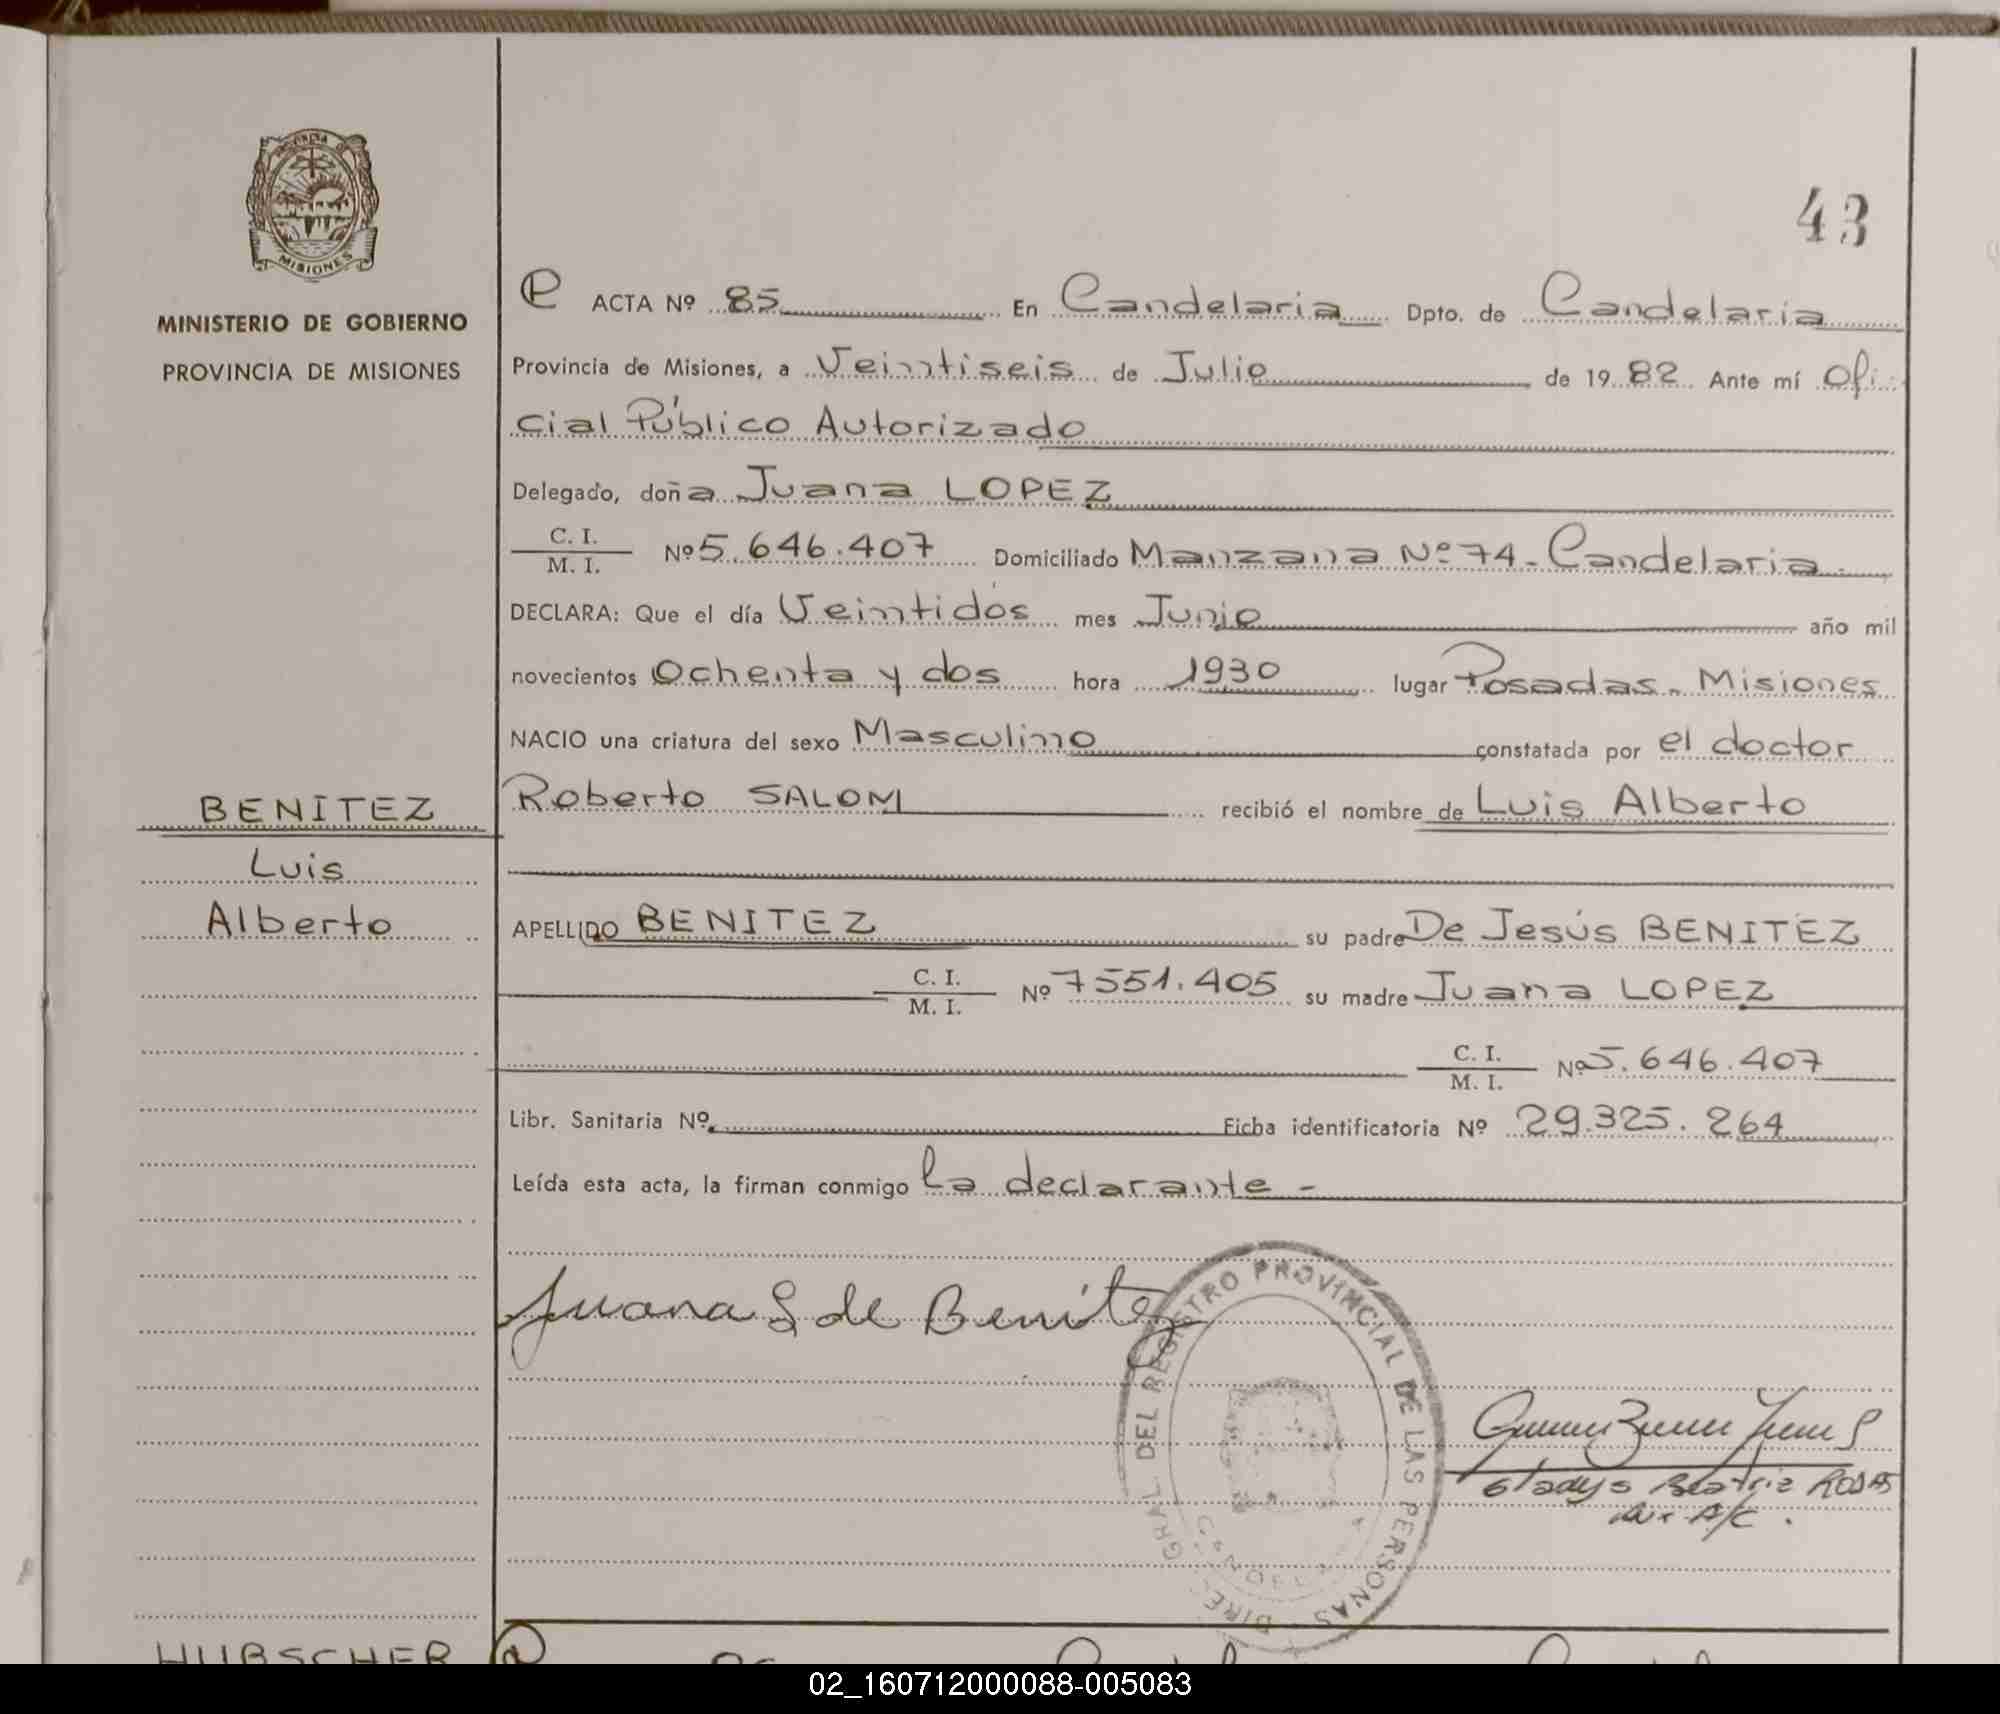 PROVINCIA DE
MISIONES
MINISTERIO DE GOBIERNO
PROVINCIA DE MISIONES
43
ACTA Nº 85 En Candelaria Dpto. de Candelaria
Provincia de Misiones, a Veintiseis de Julio de 1982 Ante mí Ofi-
cial Público Autorizado
Delegado, doña Juana LOPEZ
C. I.
M. I. Nº 5.646.407 Domiciliado Manzana Nº 74 - Candelaria
DECLARA: Que el día Veintidós mes Junio año mil
novecientos Ochenta y dos hora 1930 lugar Posadas - Misiones
NACIO una criatura del sexo Masculino constatada por el doctor
Roberto SALOM recibió el nombre de Luis Alberto
BENITEZ
Luis
Alberto
APELLIDO BENITEZ su padre De Jesús BENITEZ
C. I.
M. I. Nº 7551.405 su madre Juana LOPEZ
C. I.
M. I. Nº 5.646.407
Libr. Sanitaria Nº Ficha identificatoria Nº 29.325.264
Leída esta acta, la firman conmigo la declarante -
Juana L de Benitez
DIREC. GRAL. DEL REGISTRO PROVINCIAL DE LAS PERSONAS
Gladys Beatriz ROSAS
Aux. A/C.
HUBSCHER
02_160712000088-005083